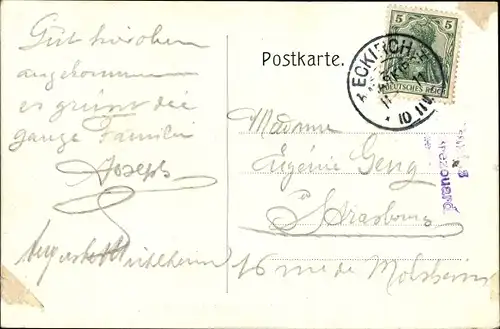 Gut hier oben
angekommen
es grüsst die
ganze Familie
Joseph
Auguste
Postkarte.
5 5
DEUTSCHES REICH
ECKIRCH
Madame
Eugénie Geng
à Strasbourg
16 rue de Molsheim